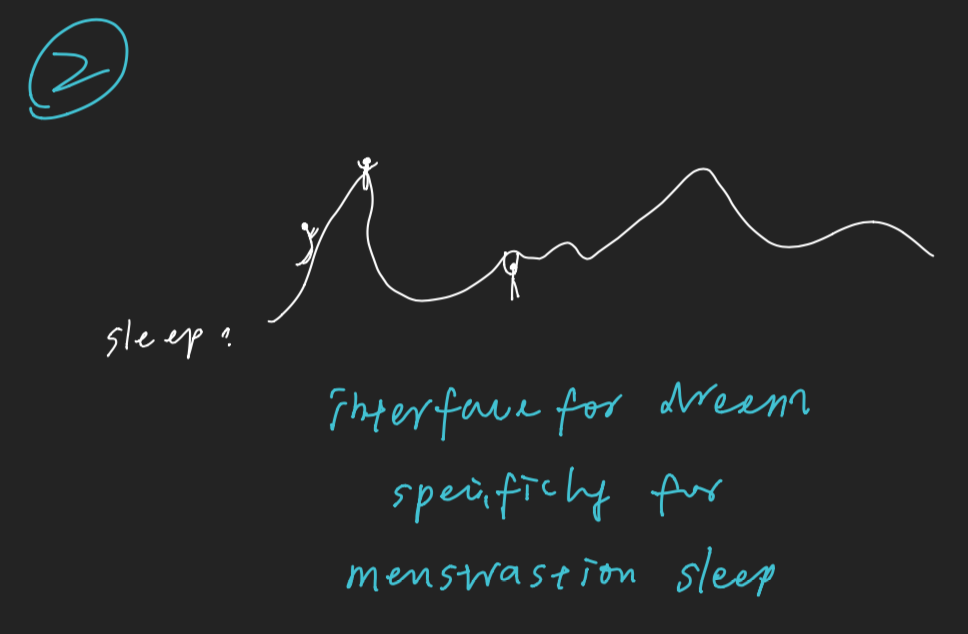 2
sleep?
interface for dream
specificly for
menstrastion sleep